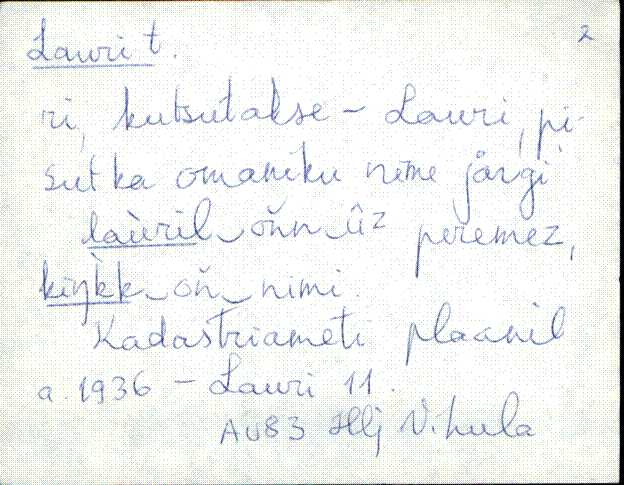 Lauri t.
2
ri, kutsutakse – Lauri, pi-
sut ka omaniku nime järgi
laùril on̆n ûz peremez,
kiŋ̀kk on̆ nimi.
Kadastriameti plaanil
a. 1936 – Lauri 11.
AU83 Hlj Vihula